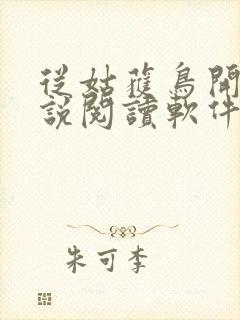 從姑蘇鳥開
說閱讀軟件
朱可李